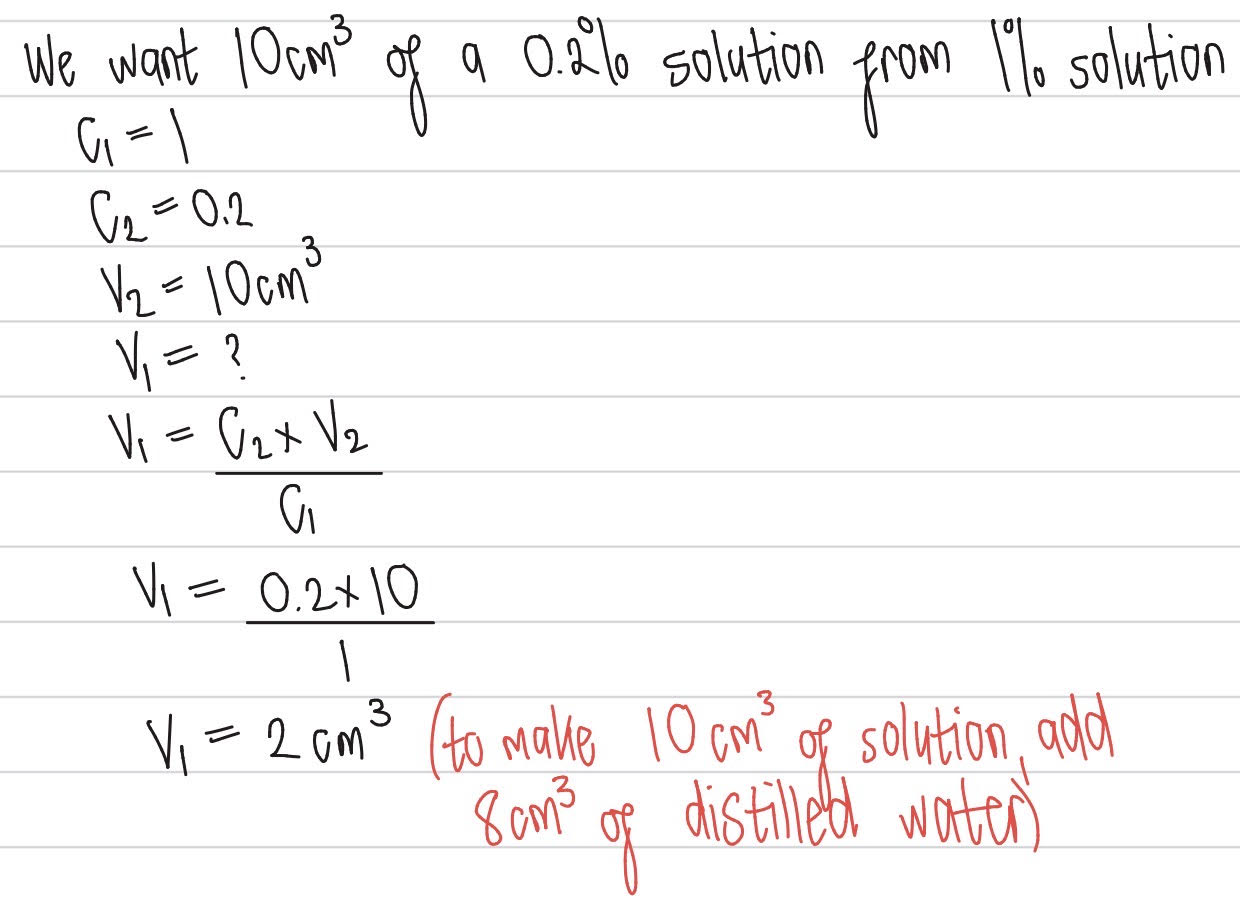 We want 10cm³ of a 0.2% solution from 1% solution
C₁ = 1
C₂ = 0.2
V₂ = 10cm³
V₁ = ?
V₁ = C₂ x V₂
C₁
V₁ = 0.2 x 10
1
V₁ = 2 cm³ (to make 10 cm³ of solution, add
8cm³ of distilled water)